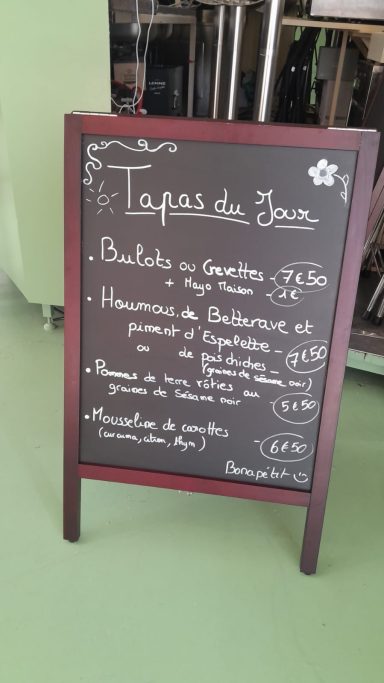 Tapas du Jour
• Bulots ou Crevettes - 7€50
+ Mayo Maison - 1€
• Houmous de Betterave et
piment d'Espelette -
ou de pois chiches - 7€50
(graines de sésame noir)
• Pommes de terre rôties au
graines de Sésame noir 5€50
• Mousseline de carottes
(curcuma, citron, thym) - 6€50
Bonapétit